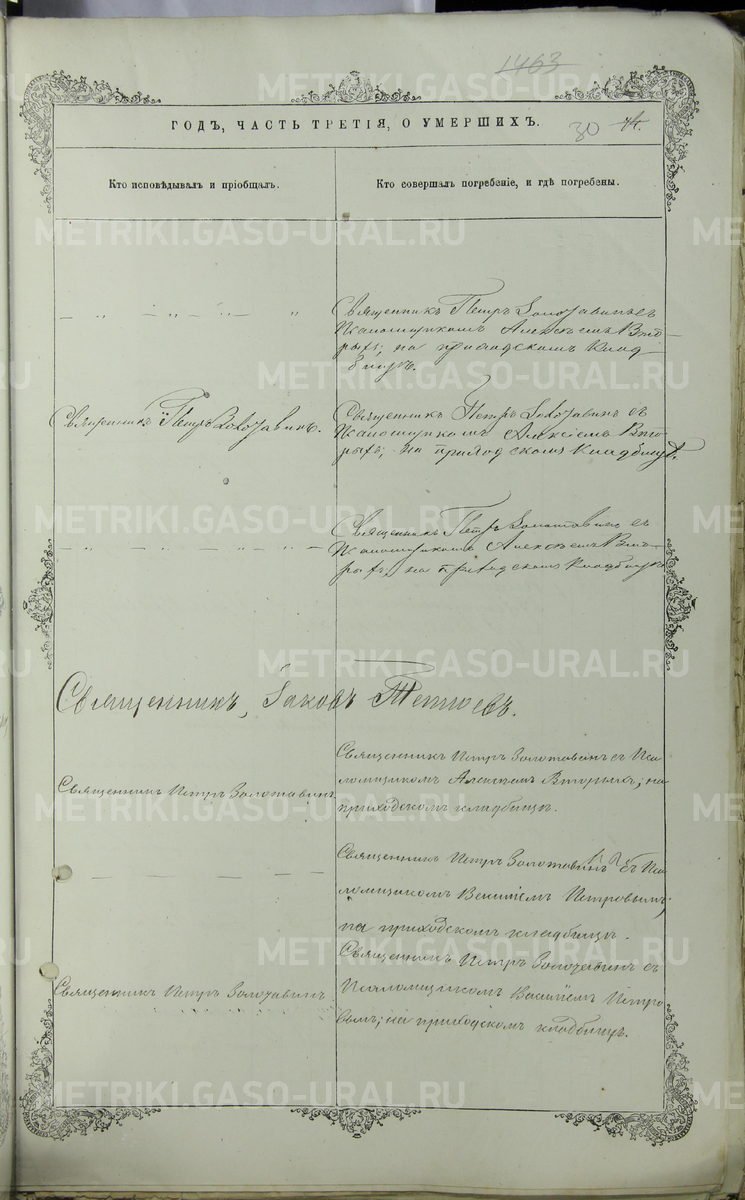 1463
ГОДЪ, ЧАСТЬ ТРЕТІЯ, О УМЕРШИХЪ.
30
Кто исповѣдывалъ и пріобщалъ.
Кто совершалъ погребеніе, и гдѣ погребены.
— „ — „ — „ — „
Священникъ Петръ Золотавинъ съ
Псаломщикомъ Алексѣемъ Вто-
рыхъ; на приходскомъ клад-
бищѣ.
Священникъ Петръ Золотавинъ.
Священникъ Петръ Золотавинъ съ
Псаломщикомъ Алексѣемъ Вто-
рыхъ; на приходскомъ кладбищѣ.
Священникъ Петръ Золотавинъ съ
Псаломщикомъ Алексѣемъ Вто-
рыхъ; на приходскомъ кладбищѣ
Священникъ, Іаковъ
Священникъ Петръ Золотавинъ
Священникъ Петръ Золотавинъ съ Пса-
ломщикомъ Алексѣемъ Вторыхъ; на
приходскомъ кладбищѣ.
Священникъ Петръ Золотавинъ съ Пса-
ломщикомъ Петровымъ;
на приходскомъ кладбищѣ.
Священникъ Петръ Золотавинъ
Священникъ Петръ Золотавинъ съ
Псаломщикомъ Петро-
вымъ; на приходскомъ кладбищѣ.
METRIKI.GASO-URAL.RU